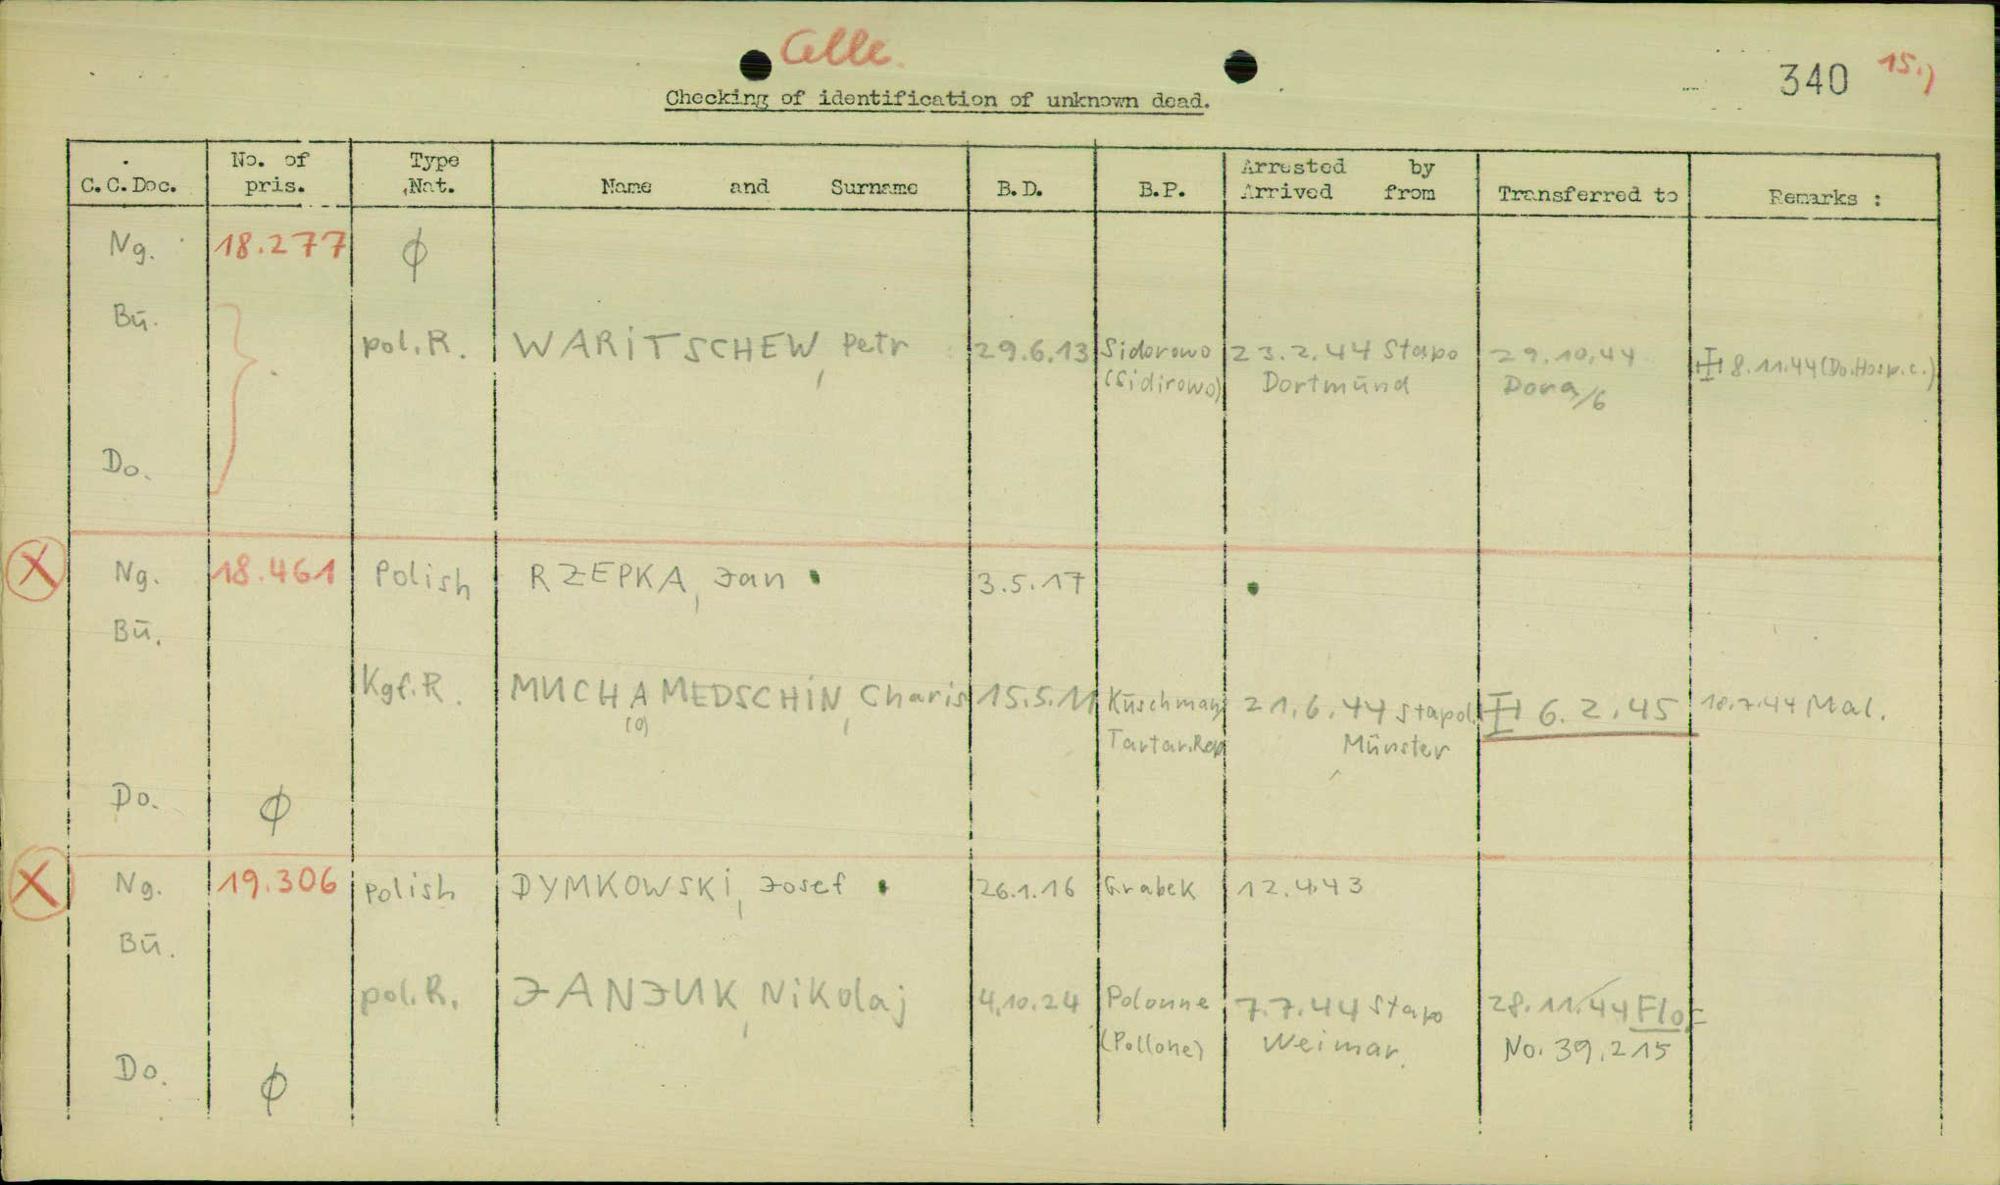 Celle.
340 15.)
Checking of identification of unknown dead.
C.C.Doc. No. of pris. Type Nat. Name and Surname B.D. B.P. Arrested by Arrived from Transferred to Remarks :
Ng. 18.277 ϕ
Bū.
pol.R. WARITSCHEW, Petr 29.6.13 Sidorowo 23.2.44 Stapo 29.10.44 8.11.44 (Do.Hosp.c.)
(Sidirowo) Dortmūnd Dora/6
Do.
X Ng. 18.461 Polish RZEPKA, Jan 3.5.17
Bū.
Kgf.R. MUCHAMEDSCHIN, Charis 15.5.11 21.6.44 Stapol. 6.2.45 18.7.44 Mal.
(o) Tartar.Rep Mūnster
Do. ϕ
X Ng. 19.306 Polish DYMKOWSKI, Josef 26.1.16 Grabek 12.4.43
Bū.
pol.R. JANJUK, Nikolaj 4.10.24 Polonne 7.7.44 Stapo 28.11.44 Flo=
(Pollone) Weimar. No. 39.215
Do. ϕ